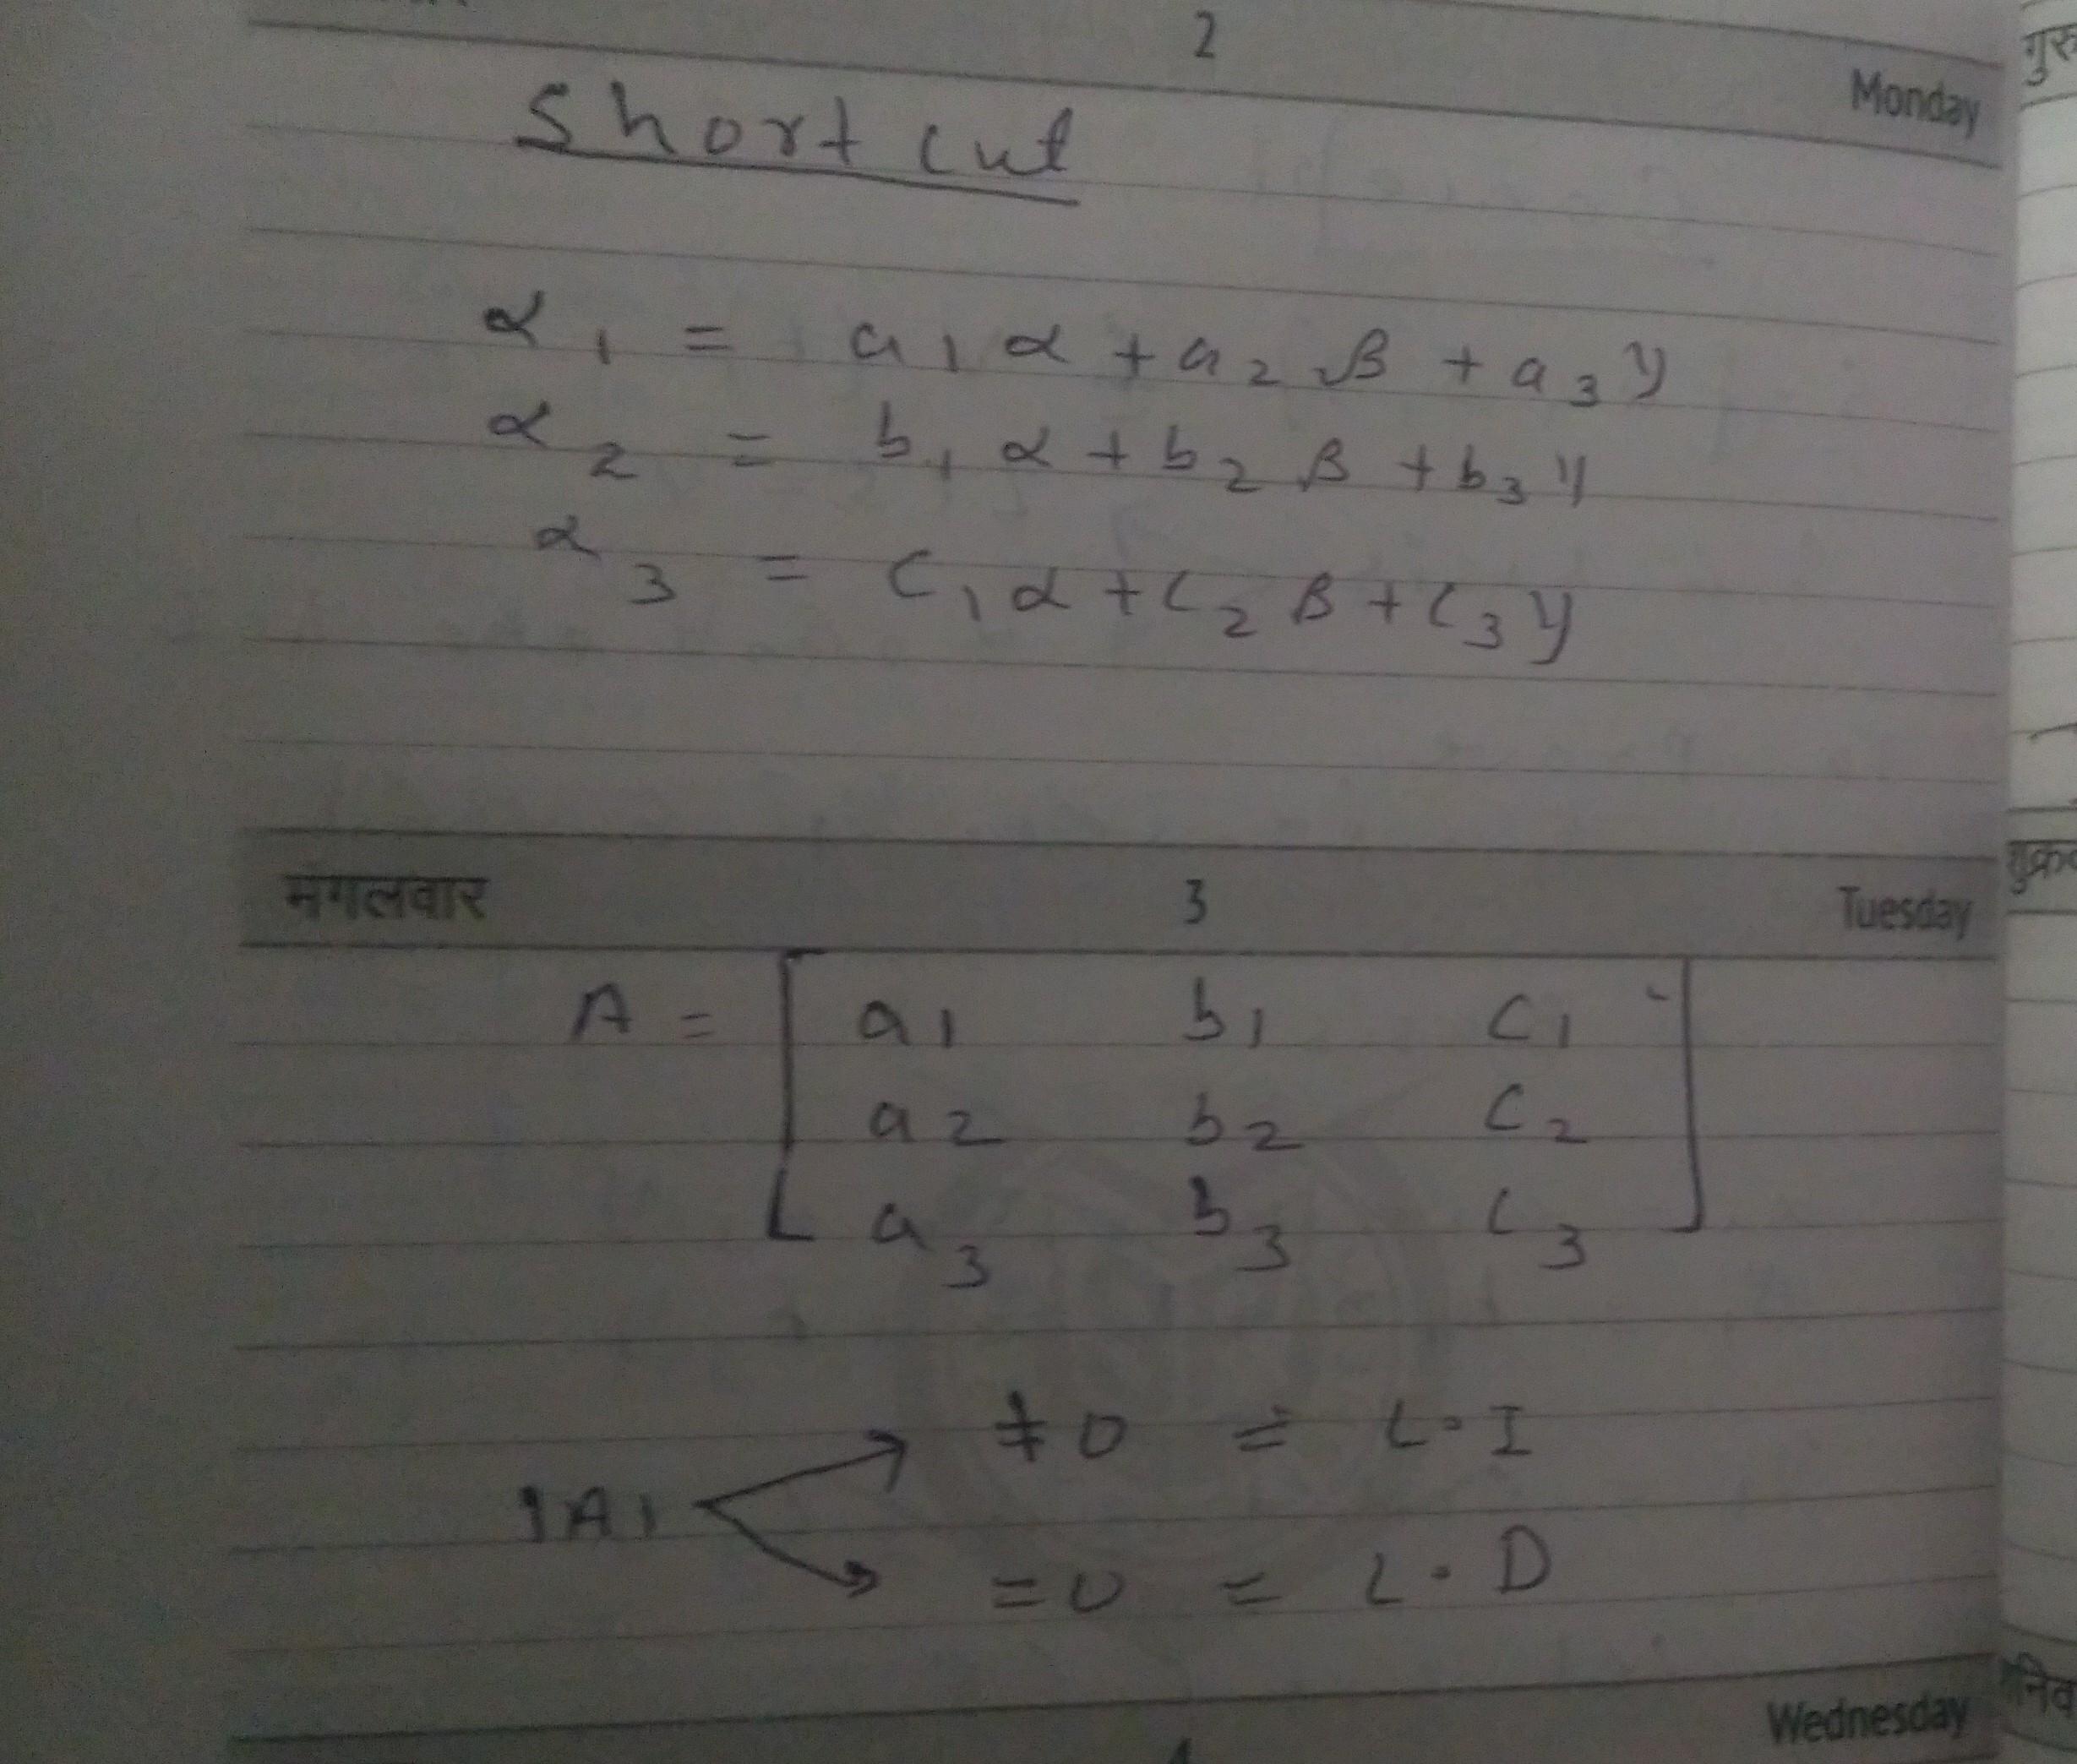 2
Monday
Short cut
α1 = a1 α + a2 β + a3 y
α2 = b1 α + b2 β + b3 y
α3 = c1 α + c2 β + c3 y
मंगलवार 3 Tuesday
A = [ a1 b1 c1
a2 b2 c2
a3 b3 c3 ]
≠ 0 = L.I
|A|
= 0 = L.D
Wednesday